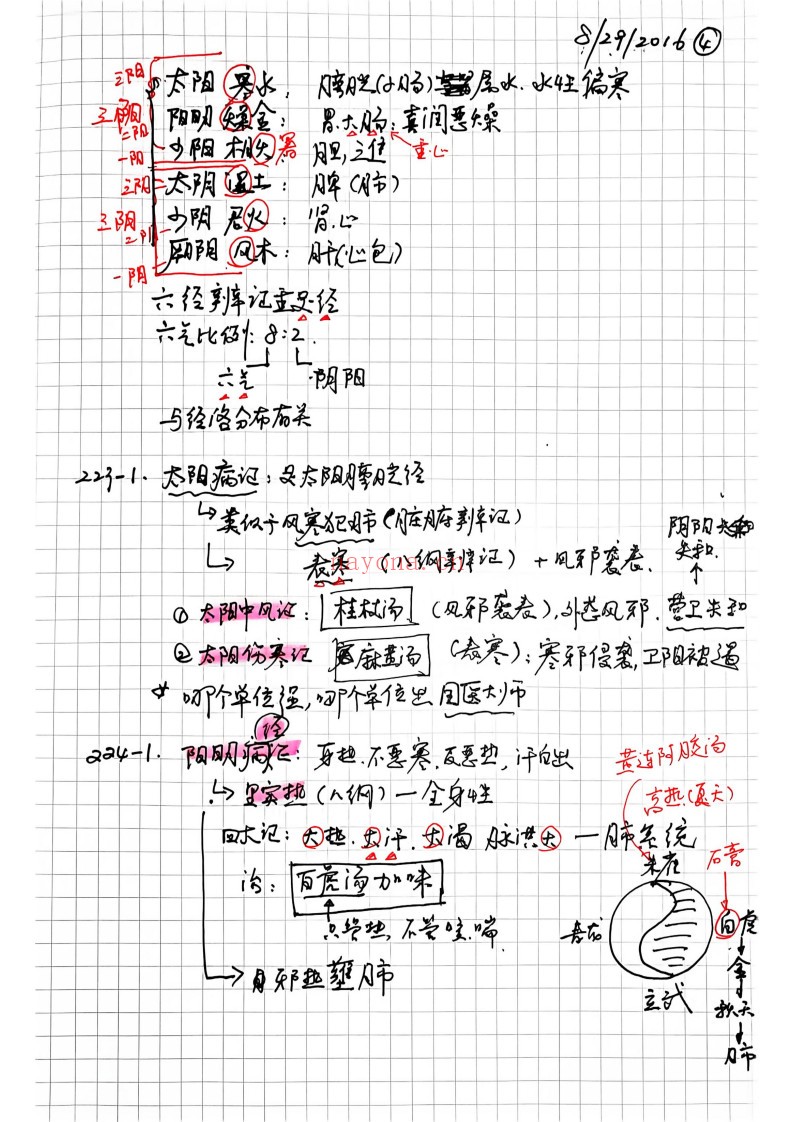 8/29/2016 ④
三阳 太阳寒水: 膀胱(小肠)属水.水性偏寒
三阳 二阳 阳明燥金: 胃.大肠: 喜润恶燥
一阳 少阳相火 暑 胆,三焦 重心
三阴 太阴湿土: 脾(肺)
三阴 二阴 少阴君火: 肾.心
一阴 厥阴风木: 肝(心包)
六经辨证重足经
六气比例: 8:2.
六气 阴阳
与经络分布有关
223-1. 太阳病证: 足太阳膀胱经
类似于风寒犯肺(脏腑辨证)
阴阳失和
失和.
表寒 (八纲辨证) + 风邪袭表.
① 太阳中风证: 桂枝汤 (风邪袭表),外感风邪.营卫失和
② 太阳伤寒证 麻黄汤 (表寒): 寒邪侵袭,卫阳被遏
哪个单位强,哪个单位出国医大师
经
224-1. 阳明病证: 身热.不恶寒,反恶热,汗自出
黄连阿胶汤
里实热 (八纲) — 全身性
高热(夏天)
四大证: 大热.大汗.大渴 脉洪大 — 肺系统
朱雀
石膏
治: 白虎汤加味
只管热,不管咳喘
青龙
白虎
玄武
金
秋天
肺
邪热壅肺
nayona.cn